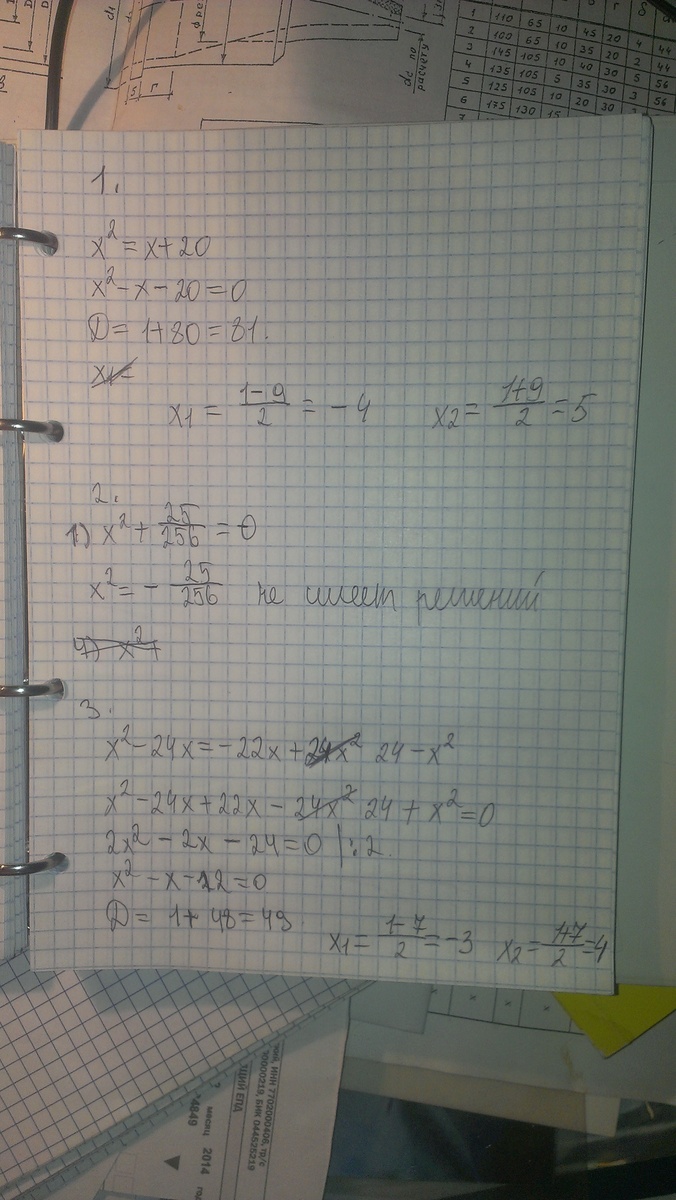 1 110 65 10 45 20 4 44
2 100 65 10 35 20 2 44
3 145 105 10 40 30 5 56
4 135 105 5 35 30 3 56
5 125 105 10 20 30
6 175 130 15
dc по расчету
1.
x² = x + 20
x² - x - 20 = 0
D = 1 + 80 = 81.
x₁ = (1-9)/2 = -4 x₂ = (1+9)/2 = 5
2.
1) x² + 25/256 = 0
x² = - 25/256 не имеет решений
3.
x² - 24x = -22x + 24 - x²
x² - 24x + 22x - 24 + x² = 0
2x² - 2x - 24 = 0 |:2.
x² - x - 12 = 0
D = 1 + 48 = 49
x₁ = (1-7)/2 = -3 x₂ = (1+7)/2 = 4
ИНН 7702000406, р/с
БИК 044525219
месяц 2014